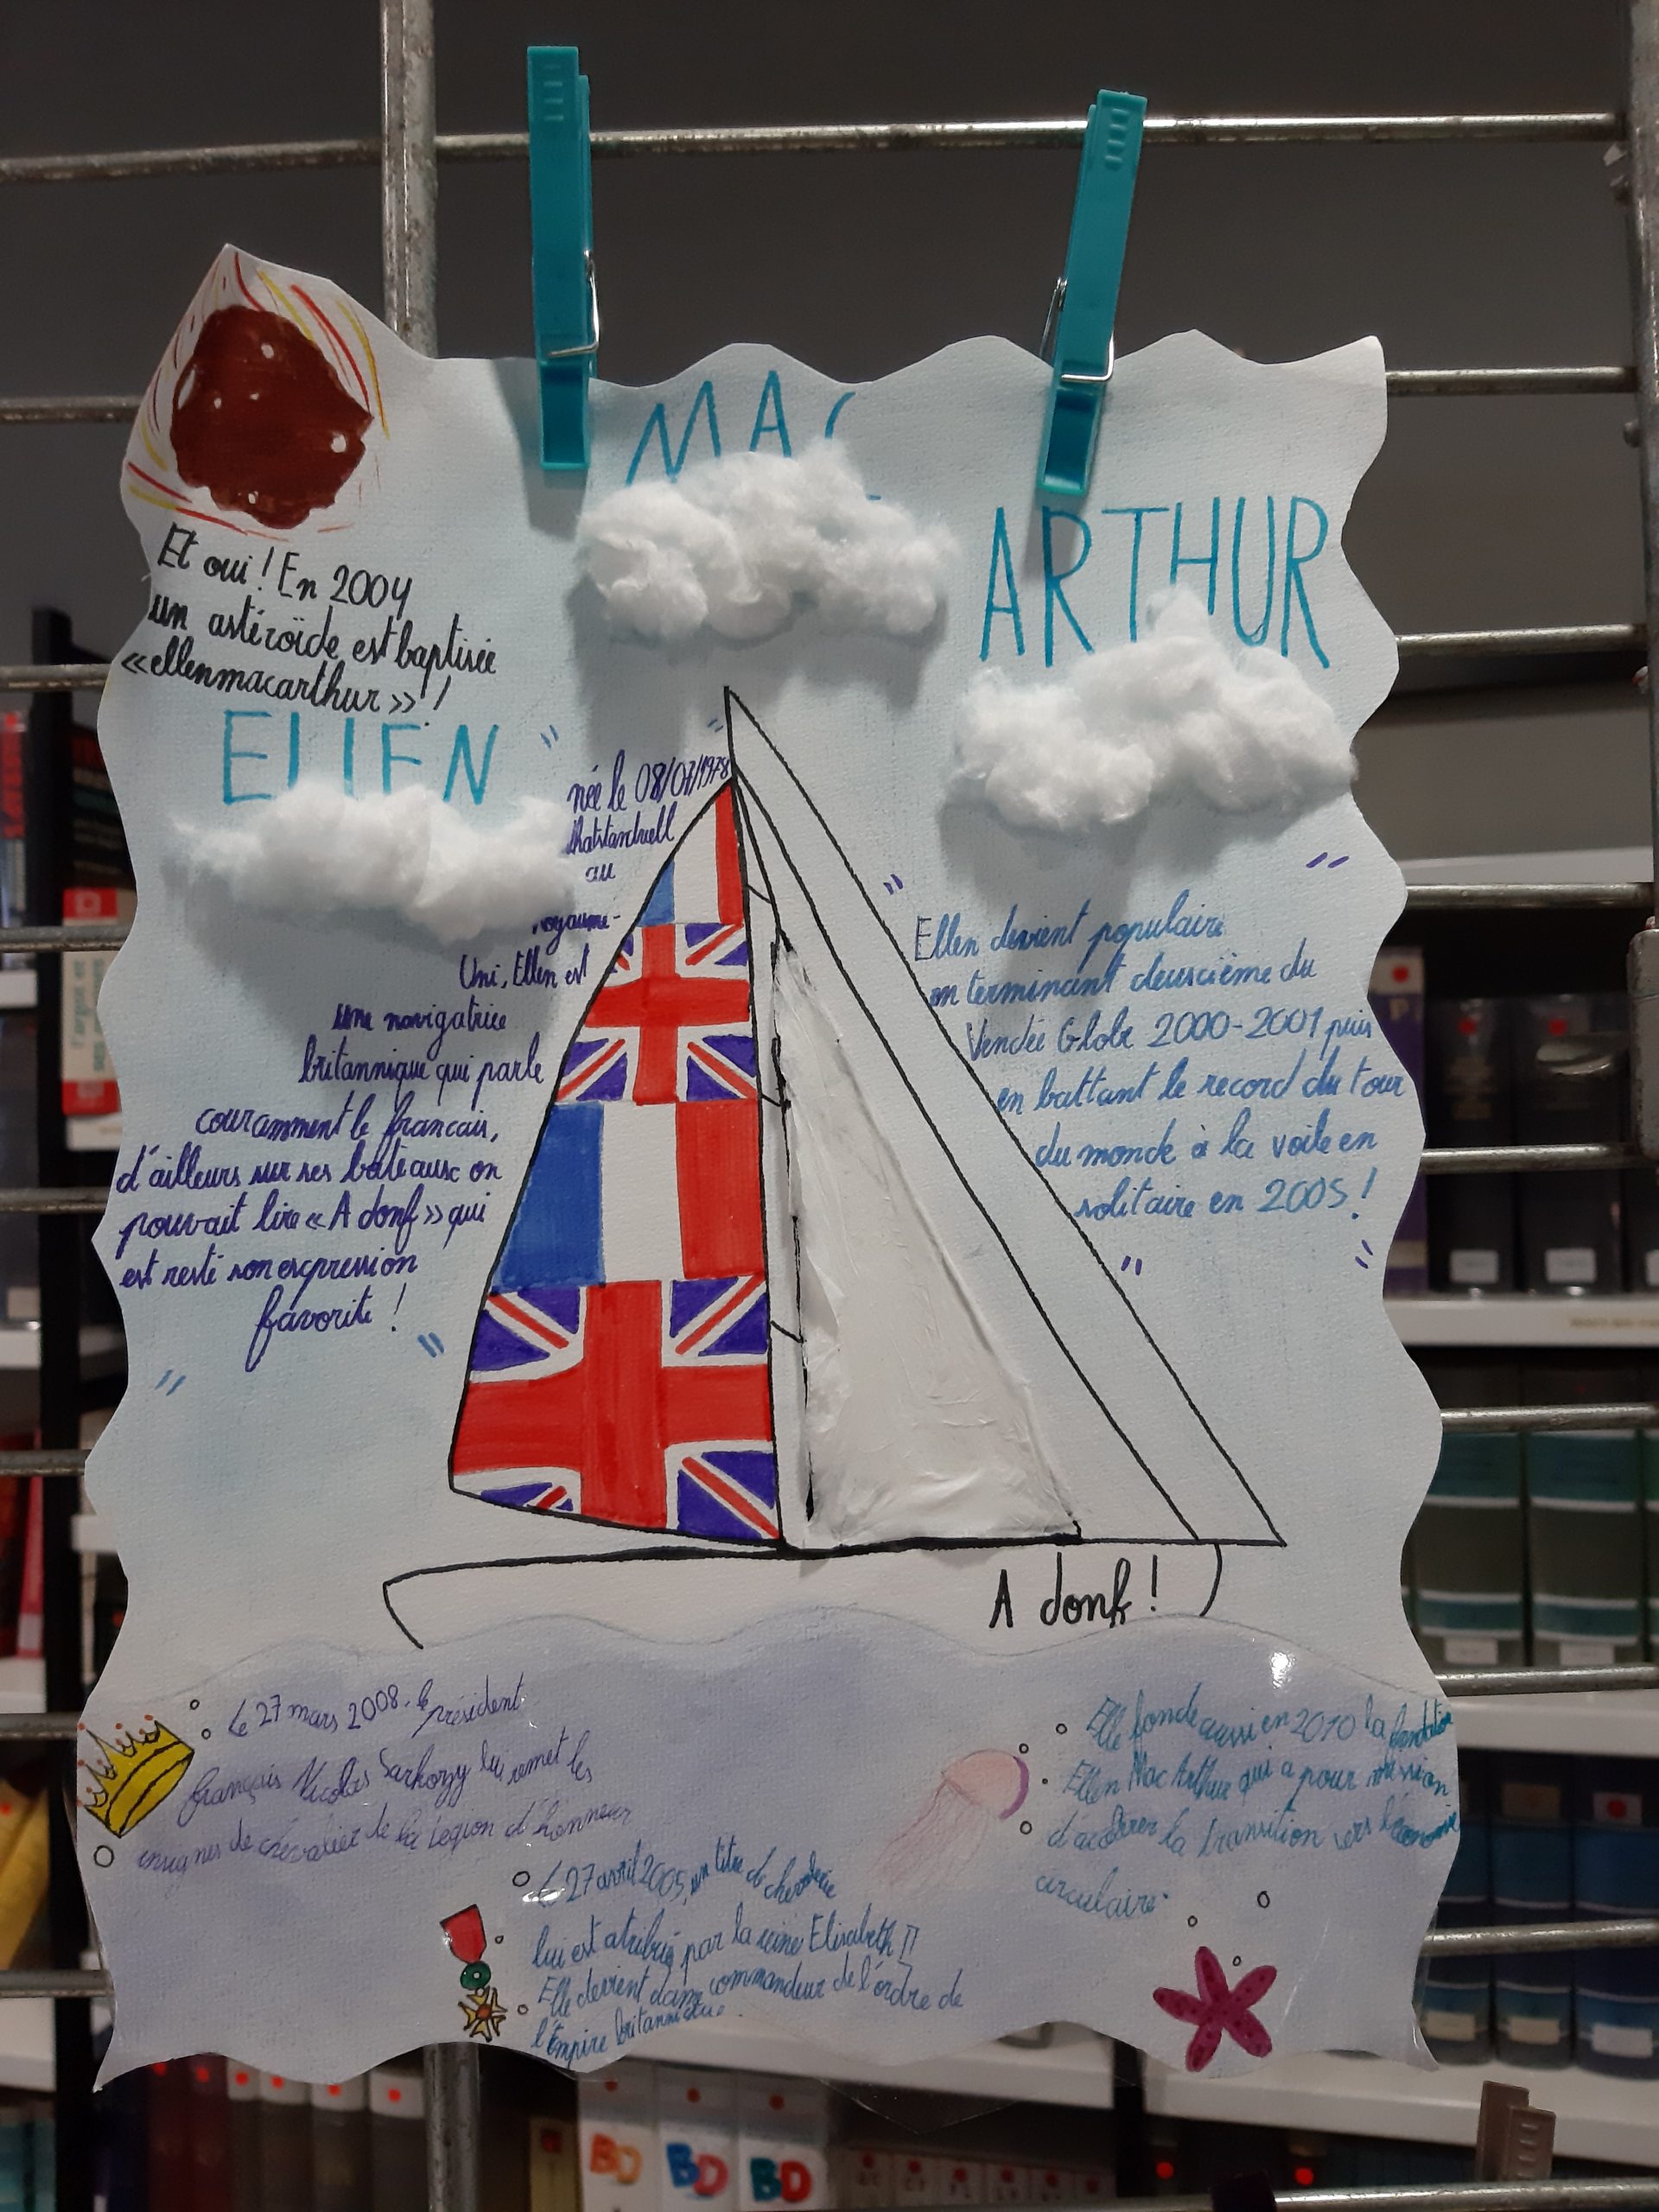 MAC
ARTHUR
Et oui ! En 2004
un astéroïde est baptisée
« ellenmacarthur » !
ELLEN
née le 08/07/1978
Whatstandwell
au
Royaume-
Uni, Ellen est
une navigatrice
britannique qui parle
couramment le francais,
d'ailleurs sur ses bateaux on
pouvait lire « A donf » qui
est resté son expression
favorite !
Ellen devient populaire
en terminant deuxcième du
Vendée Globe 2000-2001 puis
en battant le record du tour
du monde à la voile en
solitaire en 2005 !
A donf !
Le 27 mars 2008, le président
français Nicolas Sarkozy lui remet les
insignes de chevalier de la légion d'honneur
Le 27 avril 2005, un titre de chevalerie
lui est atribué par la reine Elisabeth II
Elle devient dame commandeur de l'ordre de
l'Empire britannique.
Elle fonde aussi en 2010 la fondation
Ellen Mac Arthur qui a pour mission
d'accélérer la transition vers l'économie
circulaire.
BD BD BD